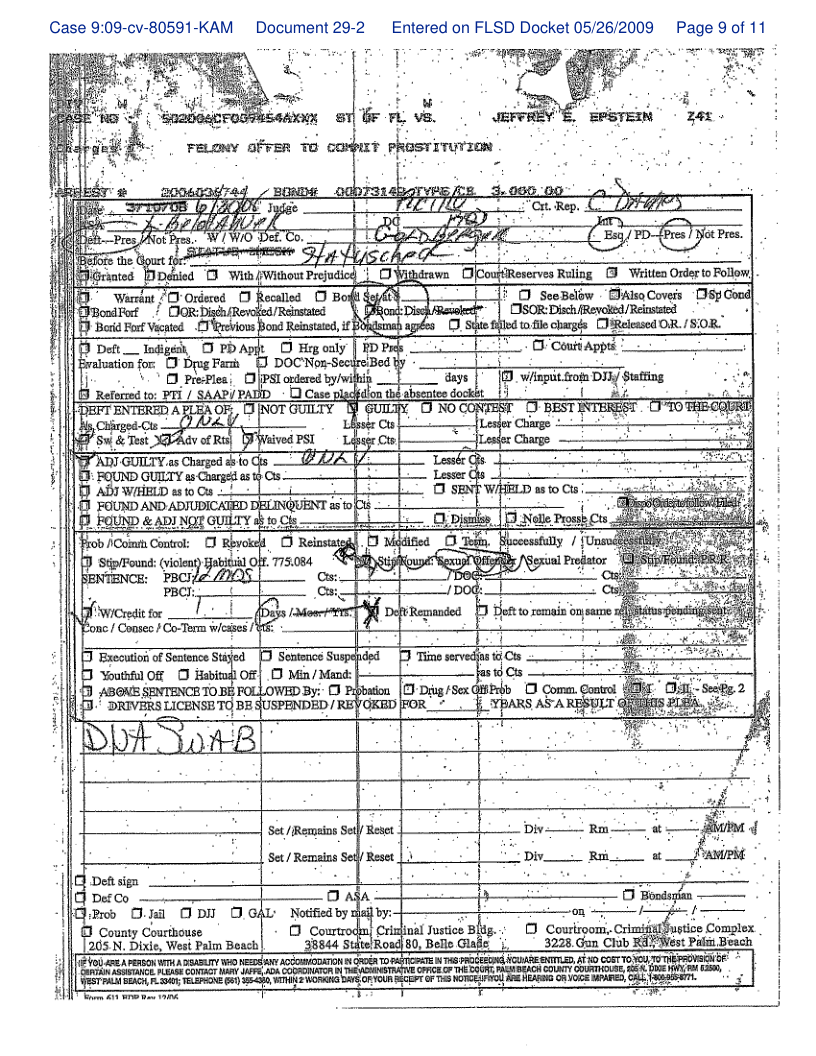 Case 9:09-cv-80591-KAM Document 29-2 Entered on FLSD Docket 05/26/2009 Page 9 of 11
DIV W W
CASE NO 502006CF009454AXXX ST OF FL VS. JEFFREY E. EPSTEIN Z41
Charges
FELONY OFFER TO COMMIT PROSTITUTION
ARREST # 2006036744 / BOND# TYPE/CB 3,000.00
Date Judge Crt. Rep.
ASA DC Int
Deft--Pres / Not Pres. W / W/O Def. Co. Goldberger Esq / PD--Pres / Not Pres.
Before the Court for: Status check
Granted Denied With / Without Prejudice Withdrawn Court Reserves Ruling Written Order to Follow
Warrant Ordered Recalled Bond Set at $ See Below Also Covers Sp Cond
Bond Forf OR: Disch/Revoked/Reinstated Bond: Disch/Revoked SOR: Disch/Revoked/Reinstated
Bond Forf Vacated Previous Bond Reinstated, if Bondsman agrees State failed to file charges Released O.R. / S.O.R.
Deft Indigent PD Appt Hrg only PD Pres Court Appts
Evaluation for: Drug Farm DOC Non-Secure Bed by
Pre-Plea PSI ordered by/within days w/input from DJJ / Staffing
Referred to: PTI / SAAP / PADD Case placed on the absentee docket
DEFT ENTERED A PLEA OF: NOT GUILTY GUILTY NO CONTEST BEST INTEREST TO THE COURT
As Charged-Cts ONLY Lesser Cts Lesser Charge
Sw & Test Adv of Rts Waived PSI Lesser Cts Lesser Charge
ADJ GUILTY as Charged as to Cts ONLY Lesser Cts
FOUND GUILTY as Charged as to Cts Lesser Cts
ADJ W/HELD as to Cts SENT W/HELD as to Cts
FOUND AND ADJUDICATED DELINQUENT as to Cts
FOUND & ADJ NOT GUILTY as to Cts Dismiss Nolle Prosse Cts
Prob / Comm Control: Revoked Reinstated Modified Term. Successfully / Unsuccessfully
Stip/Found: (violent) Habitual Off. 775.084 Stip/Found: Sexual Offender / Sexual Predator Stip/Found: P.R.R.
SENTENCE: PBCJ: MOS Cts: / DOC: Cts
PBCJ: Cts: / DOC: Cts
W/Credit for 1 Days / Mos. / Yrs. Deft Remanded Deft to remain on same rel status pending sent.
Conc / Consec / Co-Term w/cases / cts:
Execution of Sentence Stayed Sentence Suspended Time served as to Cts
Youthful Off Habitual Off Min / Mand: as to Cts
ABOVE SENTENCE TO BE FOLLOWED By: Probation Drug / Sex Off Prob Comm. Control I II - See Pg. 2
DRIVERS LICENSE TO BE SUSPENDED / REVOKED FOR YEARS AS A RESULT OF THIS PLEA
DNA SWAB
Set / Remains Set / Reset Div Rm at AM/PM
Set / Remains Set / Reset Div Rm at AM/PM
Deft sign
Def Co ASA Bondsman
Prob Jail DJJ GAL Notified by mail by: on / /
County Courthouse Courtroom, Criminal Justice Bldg. Courtroom, Criminal Justice Complex
205 N. Dixie, West Palm Beach 38844 State Road 80, Belle Glade 3228 Gun Club Rd., West Palm Beach
IF YOU ARE A PERSON WITH A DISABILITY WHO NEEDS ANY ACCOMMODATION IN ORDER TO PARTICIPATE IN THIS PROCEEDING, YOU ARE ENTITLED, AT NO COST TO YOU, TO THE PROVISION OF
CERTAIN ASSISTANCE. PLEASE CONTACT MARY JAFFE, ADA COORDINATOR IN THE ADMINISTRATIVE OFFICE OF THE COURT, PALM BEACH COUNTY COURTHOUSE, 205 N. DIXIE HWY, RM 5.2500,
WEST PALM BEACH, FL 33401; TELEPHONE (561) 355-4380, WITHIN 2 WORKING DAYS OF YOUR RECEIPT OF THIS NOTICE; IF YOU ARE HEARING OR VOICE IMPAIRED, CALL 1-800-955-8771.
Form 611 Rev 12/06